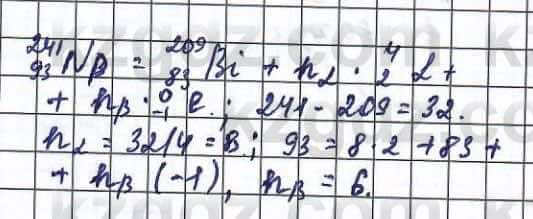 ²⁴¹₉₃Np = ²⁰⁹₈₃Bi + n_α · ⁴₂α +
+ n_β · ⁰₋₁e.; 241 - 209 = 32.
n_α = 32/4 = 8.; 93 = 8·2 + 83 +
+ n_β (-1), n_β = 6.